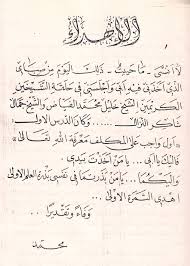 الإهداء
لا أنسى - ما حييت - ذلك اليوم من سنا يا أبي
الذي أخذتني فيه يا أبي وأجلستني في حلقة الشيخين
الكريمين الشيخ خليل محمد الفياض والشيخ كمال
شاكر .. وكان الدرس الأول
"أول واجب على المكلف معرفة الله تعالى"
فإليك يا أبي ... يا من أخذت بيدي
وإليكما ... يا من بذرتما في نفسي بذرة العلم الأولى
أهدي الثمرة الأولى ..
وفاءً وتقديراً ...
محمد